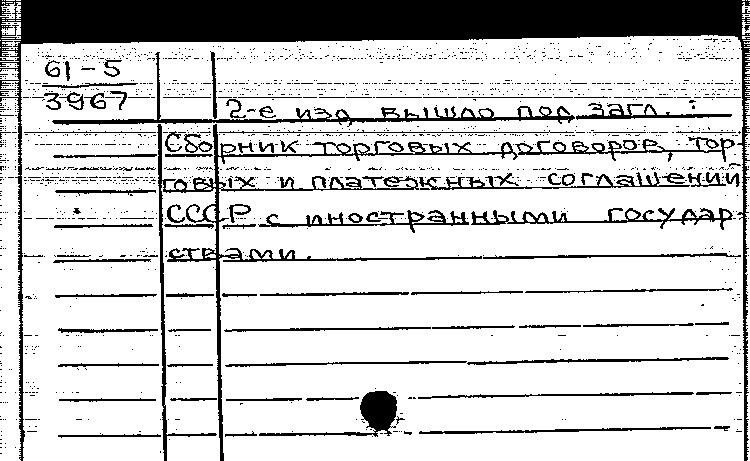 61-5
3967
2-е изд. вышло под загл.:
Сборник торговых договоров, тор-
говых и платежных соглашений
СССР с иностранными государ-
ствами.